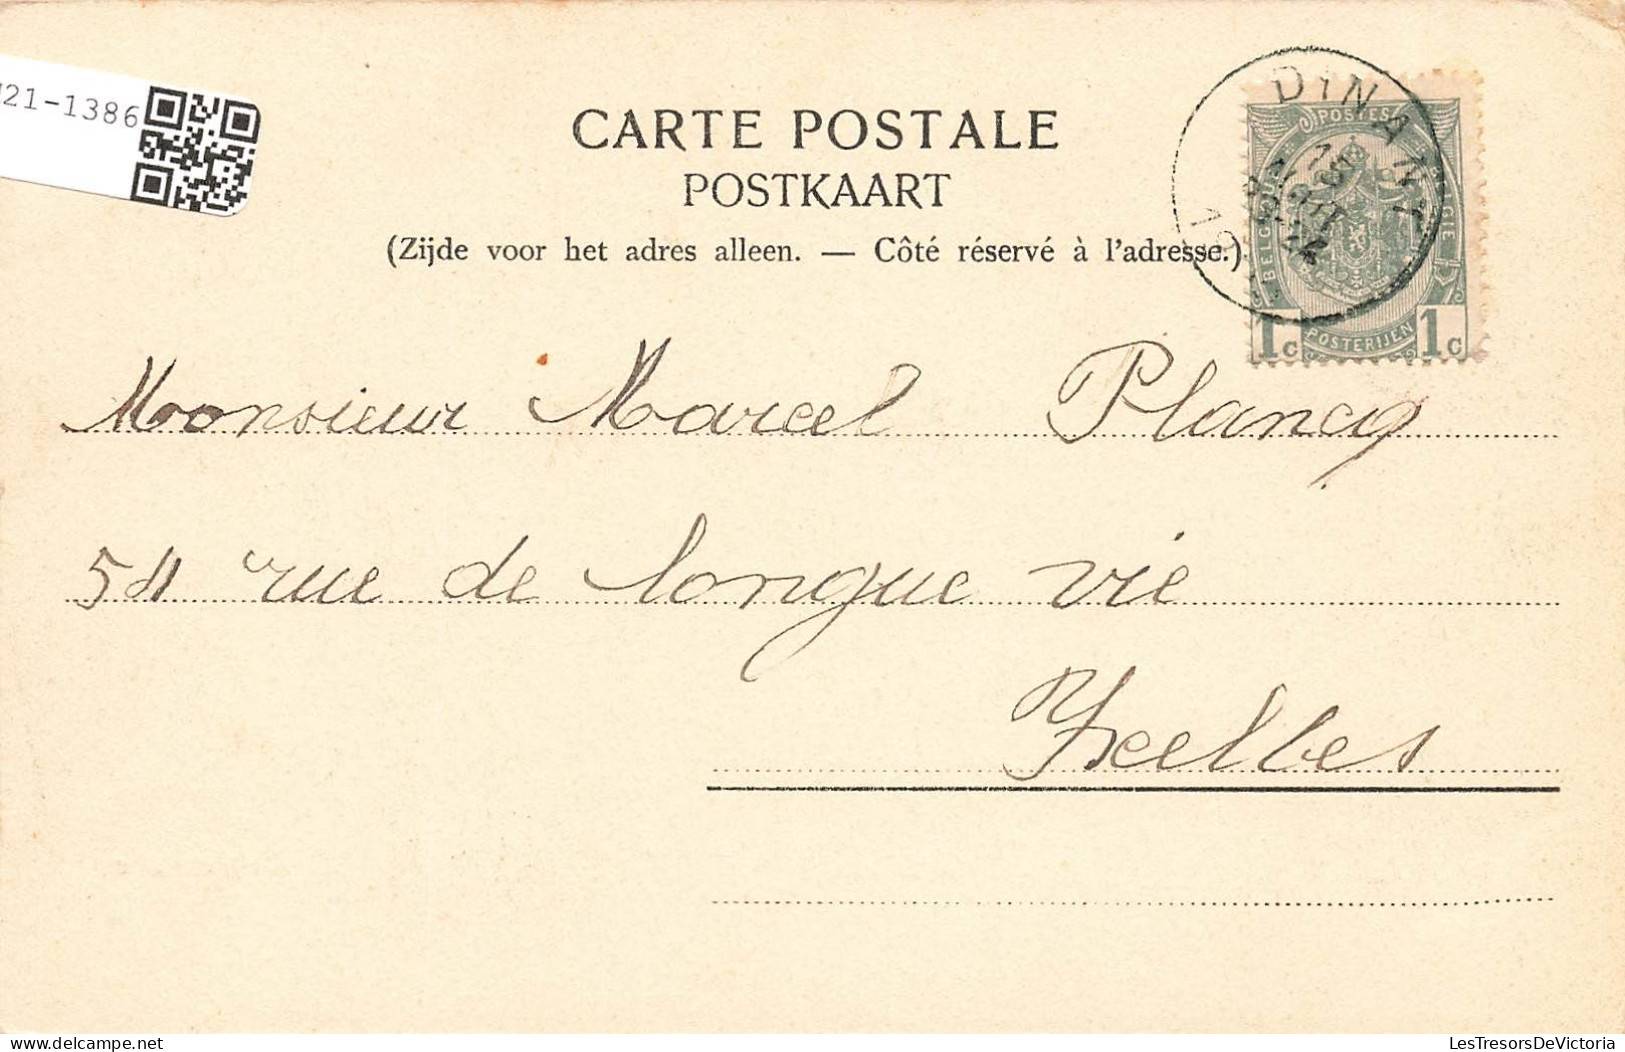 21-1386
CARTE POSTALE
POSTKAART
(Zijde voor het adres alleen. — Côté réservé à l'adresse.)
DINANT
POSTES
BELGIQUE BELGIE
POSTERIJEN
1c 1c
Monsieur Marcel Plancq
54 rue de longue vie
Ixelles
delcampe.net
LesTresorsDeVictoria